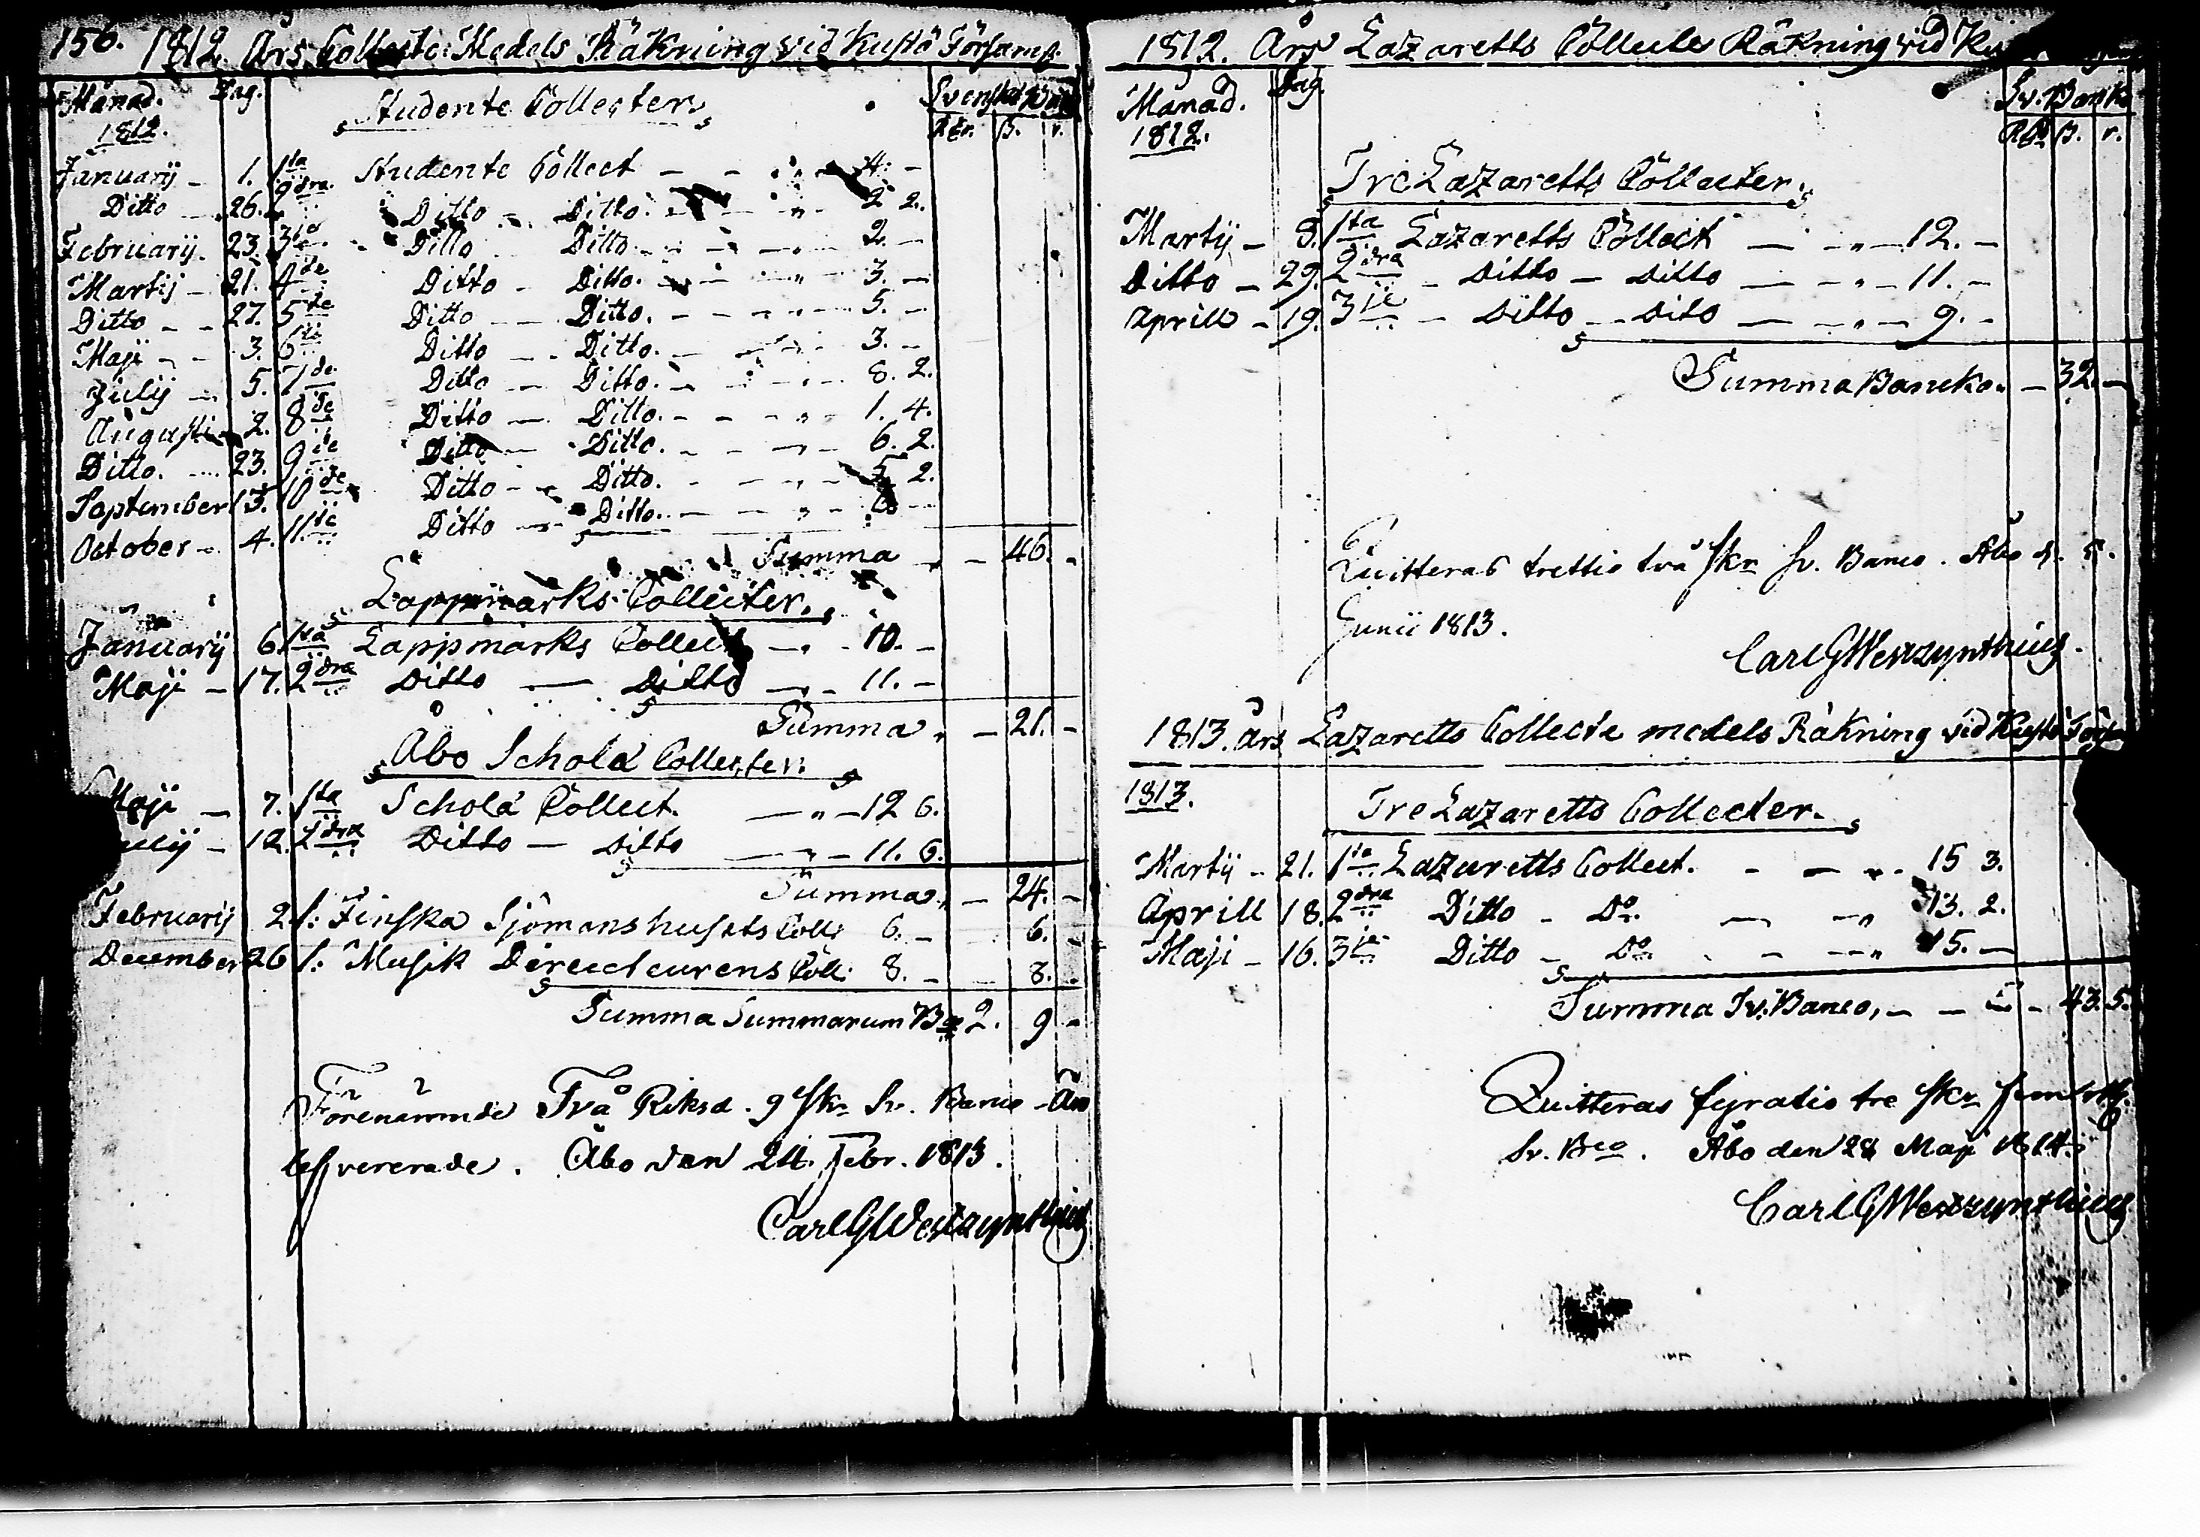 156. 1812. Års Collecte-Medels Räkning vid Kustö Församl:
Månad. Dag. Studente Collecter Svenskt Banco
1812. Rdr. ß. r.
Januarij - 1. 1sta Studente Collect - - „ - 4. -
Ditto - 26. 2dra. Ditto - Ditto. - - „ - 2 2.
Februarij. 23. 3ie Ditto Ditto - - „ - 2. -
Martij - 21. 4de Ditto - Ditto. - - „ - 3. -
Ditto - - 27. 5te Ditto - Ditto. - - „ - 5. -
Maji - - 3. 6te Ditto - Ditto. - - „ - 3. -
Julij - 5. 7de Ditto - Ditto. - - „ - 8. 2.
Augusti - 2. 8de Ditto - Ditto. - - „ - 1. 4.
Ditto. - 23. 9de Ditto - Ditto. - - „ - 6. 2.
September 13. 10de Ditto - Ditto. - - „ - 5 2.
October - 4. 11te Ditto - Ditto. - - „ - 6 -
Summa „ - 46. -
Lappmarks Collecter.
Januarij 6. 1sta Lappmarks Collect - „ - 10. -
Maji - 17. 2dra Ditto - Ditto - „ - 11. -
Summa „ - 21. -
Åbo Schola Collecter.
Maji - 7. 1sta Schola Collect. - „ - 12 6.
12. 2dra Ditto - Ditto - „ - 11. 6.
Summa „ - 24. -
Februarij 2. 1: Finska Sjömanshusets Coll: 6. - 6. -
December 26 1: Musik Directeurens Coll: 8. - 8. -
Summa Summarum Bco 2. 9 -
Förenämnde Två Riksd. 9 skr Sv. Banco
Åbo den 24. Febr. 1813.
Carl G Weszynthius
1812. Års Lazaretts Collecte Räkning vid
Månad. Dag. Sv. Banko
1812. Rdr ß. r.
Tre Lazaretts Collecter.
Martij - 8. 1sta Lazaretts Collect - „ - 12. -
Ditto - 29. 2dra - Ditto - Ditto - „ - 11. -
Aprill - 19. 3ie - Ditto - Dito - „ - 9. -
Summa Bancko. - 32. -
Quitteras trettio två skr Sv. Banco. Åbo d. 5.
Junii 1813.
Carl G Weszynthius.
1813. års Lazaretts Collecte medels Räkning vid Kustö
1813. Tre Lazaretts Collecter.
Martij - 21. 1sta Lazaretts Collect. - - „ - 15 3.
Aprill 18. 2dra Ditto - Do. - - „ 13. 2.
Maji - 16. 3ie Ditto - Do. - - „ 15. -
Summa Sv. Banco, - - - 43. 5.
Quitteras fyratio tre skr fem
Sv. Bco. Åbo den 28 Maji 1814.
Carl G Weszynthius